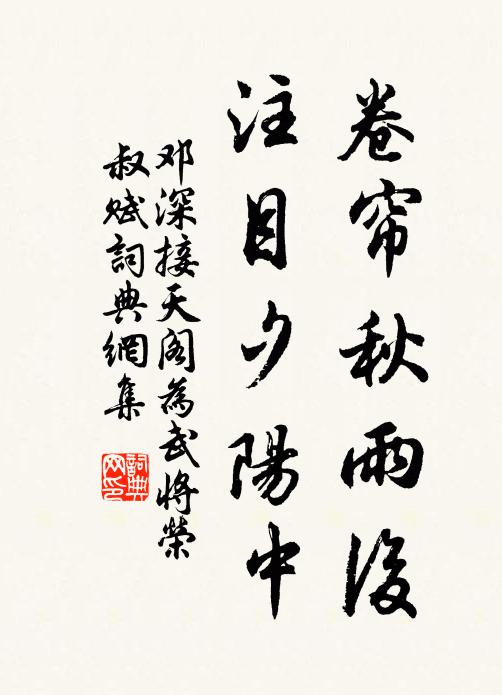 卷帘秋雨後
注目夕陽中
邓深接天阁為武将榮
叔赋詞典網集
詞典网印